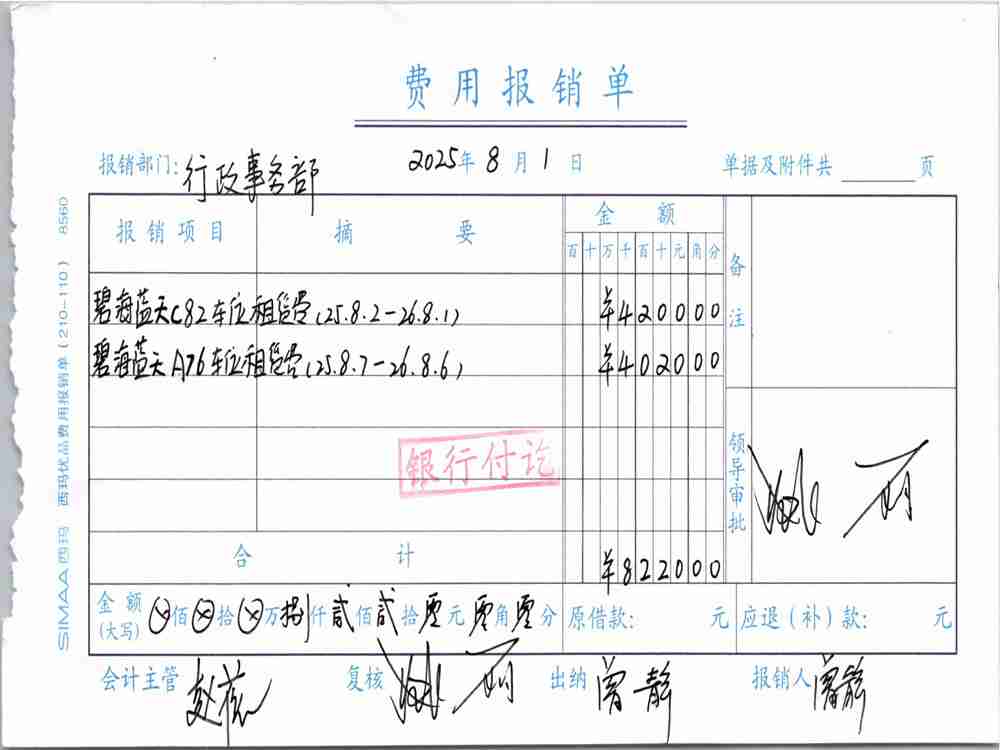 费用报销单
报销部门: 行政事务部 2025年8月1日 单据及附件共 页
报销项目 摘要 金额 备注
百十万千百十元角分
碧海蓝天C82车位租赁费(25.8.2-26.8.1) ¥420000
碧海蓝天A76车位租赁费(25.8.7-26.8.6) ¥402000
银行付讫
领导审批
合计 ¥822000
金额(大写) ⊗佰⊗拾⊗万捌仟贰佰贰拾零元零角零分 原借款: 元 应退(补)款: 元
会计主管 复核 出纳 曾静 报销人 曾静
SIMAA西玛 西玛优品费用报销单(210-110) 8560